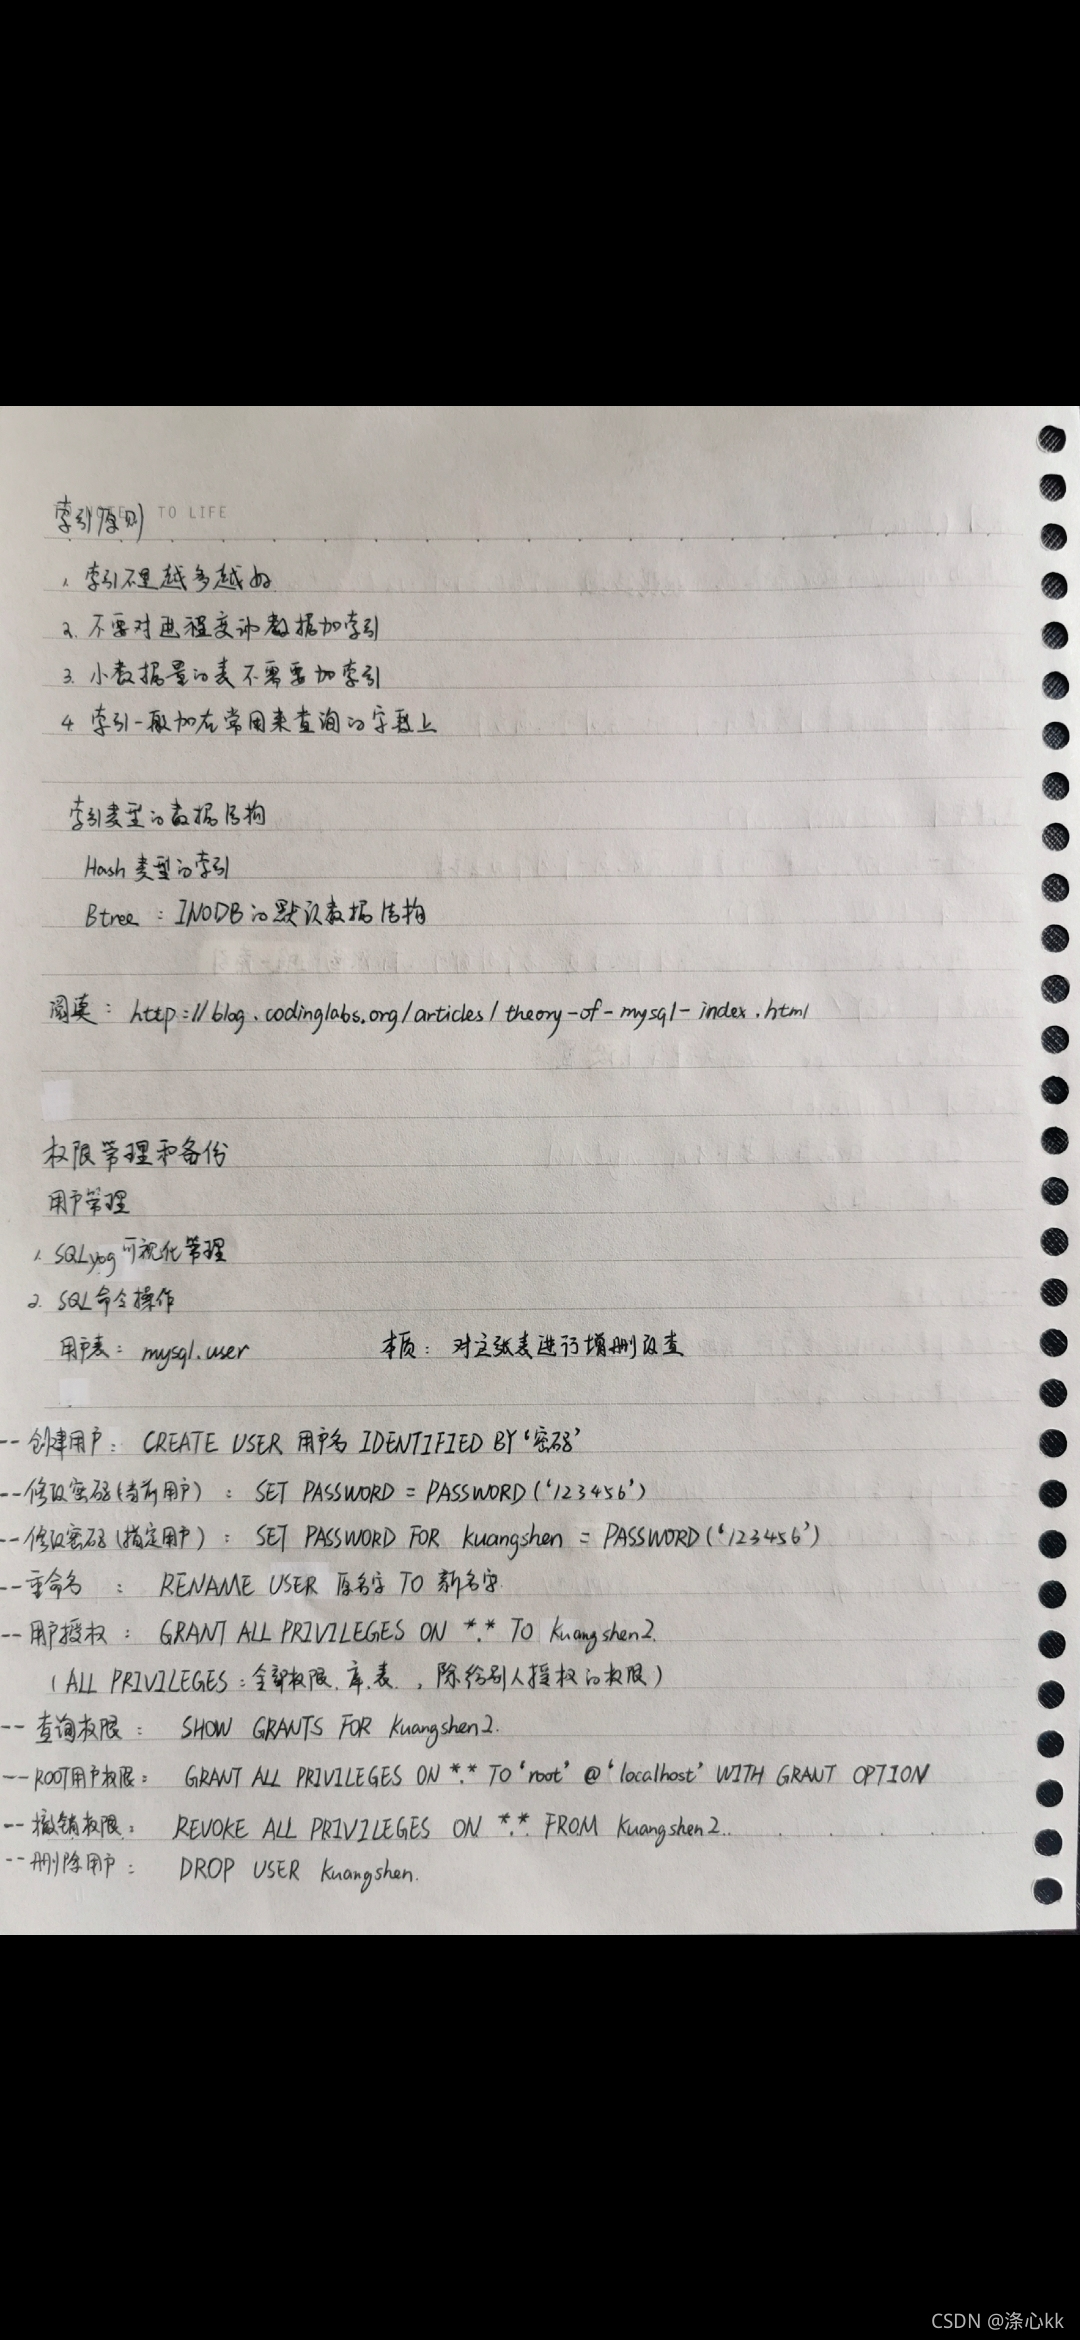 索引原则 TO LIFE
1. 索引不是越多越好
2. 不要对进程变动数据加索引
3. 小数据量的表不需要加索引
4. 索引一般加在常用来查询的字段上
索引类型的数据结构
Hash 类型的索引
Btree : INODB的默认数据结构
阅读: http://blog.codinglabs.org/articles/theory-of-mysql-index.html
权限管理和备份
用户管理
1. SQLyog 可视化管理
2. SQL命令操作
用户表: mysql.user 本质: 对这张表进行增删改查
-- 创建用户: CREATE USER 用户名 IDENTIFIED BY '密码'
-- 修改密码(当前用户) : SET PASSWORD = PASSWORD('123456')
-- 修改密码(指定用户) : SET PASSWORD FOR kuangshen = PASSWORD('123456')
-- 重命名 : RENAME USER 原名字 TO 新名字
-- 用户授权 : GRANT ALL PRIVILEGES ON *.* TO kuangshen2.
(ALL PRIVILEGES : 全部权限.库.表. , 除给别人授权的权限)
-- 查询权限 : SHOW GRANTS FOR kuangshen2.
-- ROOT用户权限: GRANT ALL PRIVILEGES ON *.* TO 'root' @ 'localhost' WITH GRANT OPTION
-- 撤销权限: REVOKE ALL PRIVILEGES ON *.* FROM kuangshen2.
-- 删除用户 : DROP USER kuangshen.
CSDN @涤心kk